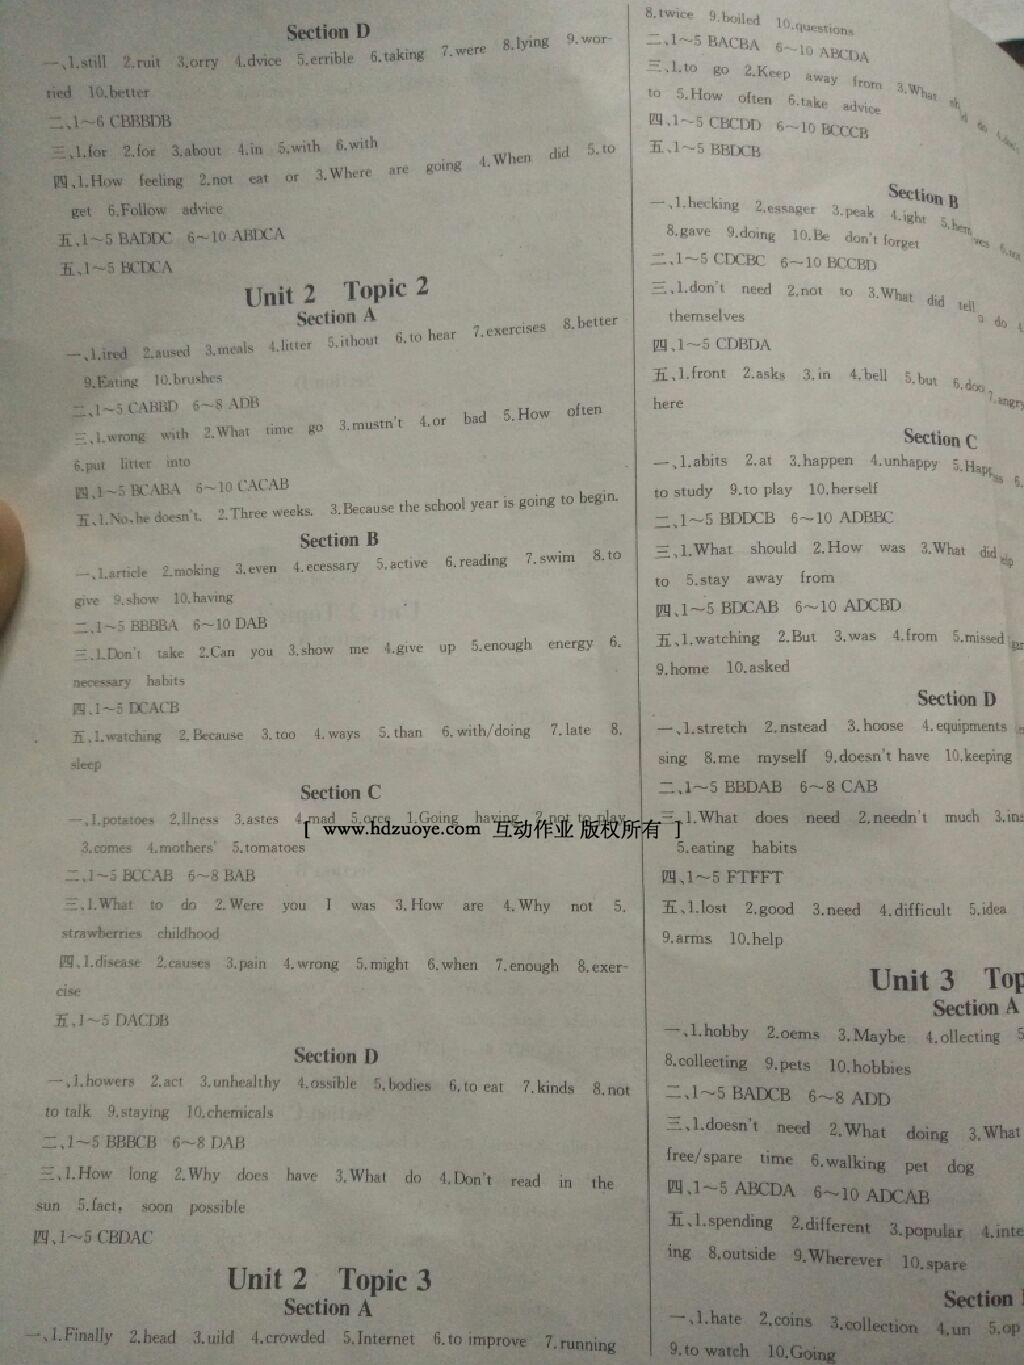 Section D
一、1.still 2.ruit 3.orry 4.dvice 5.errible 6.taking 7.were 8.lying 9.wor-
ried 10.better
二、1～6 CBBBDB
三、1.for 2.for 3.about 4.in 5.with 6.with
四、1.How feeling 2.not eat or 3.Where are going 4.When did 5.to
get 6.Follow advice
五、1～5 BADDC 6～10 ABDCA
五、1～5 BCDCA
Unit 2 Topic 2
Section A
一、1.ired 2.aused 3.meals 4.litter 5.ithout 6.to hear 7.exercises 8.better
9.Eating 10.brushes
二、1～5 CABBD 6～8 ADB
三、1.wrong with 2.What time go 3.mustn't 4.or bad 5.How often
6.put litter into
四、1～5 BCABA 6～10 CACAB
五、1.No, he doesn't. 2.Three weeks. 3.Because the school year is going to begin.
Section B
一、1.article 2.moking 3.even 4.ecessary 5.active 6.reading 7.swim 8.to
give 9.show 10.having
二、1～5 BBBBA 6～10 DAB
三、1.Don't take 2.Can you 3.show me 4.give up 5.enough energy 6.
necessary habits
四、1～5 DCACB
五、1.watching 2.Because 3.too 4.ways 5.than 6.with/doing 7.late 8.
sleep
Section C
一、1.potatoes 2.llness 3.astes 4.mad 5.orce 1.Going having 2.not to play
3.comes 4.mothers' 5.tomatoes
二、1～5 BCCAB 6～8 BAB
三、1.What to do 2.Were you I was 3.How are 4.Why not 5.
strawberries childhood
四、1.disease 2.causes 3.pain 4.wrong 5.might 6.when 7.enough 8.exer-
cise
五、1～5 DACDB
Section D
一、1.howers 2.act 3.unhealthy 4.ossible 5.bodies 6.to eat 7.kinds 8.not
to talk 9.staying 10.chemicals
二、1～5 BBBCB 6～8 DAB
三、1.How long 2.Why does have 3.What do 4.Don't read in the
sun 5.fact, soon possible
四、1～5 CBDAC
Unit 2 Topic 3
Section A
一、1.Finally 2.head 3.uild 4.crowded 5.Internet 6.to improve 7.running
8.twice 9.boiled 10.questions
二、1～5 BACBA 6～10 ABCDA
三、1.to go 2.Keep away from 3.What do
to 5.How often 6.take advice
四、1～5 CBCDD 6～10 BCCCB
五、1～5 BBDCB
Section B
一、1.hecking 2.essager 3.peak 4.ight 5.
8.gave 9.doing 10.Be don't forget
二、1～5 CDCBC 6～10 BCCBD
三、1.don't need 2.not to 3.What did tell do
themselves
四、1～5 CDBDA
五、1.front 2.asks 3.in 4.bell 5.but 6. 7.angry
here
Section C
一、1.abits 2.at 3.happen 4.unhappy 5. 6.
to study 9.to play 10.herself
二、1～5 BDDCB 6～10 ADBBC
三、1.What should 2.How was 3.What did
to 5.stay away from
四、1～5 BDCAB 6～10 ADCBD
五、1.watching 2.But 3.was 4.from 5.missed
9.home 10.asked
Section D
一、1.stretch 2.nstead 3.hoose 4.equipments
sing 8.me myself 9.doesn't have 10.keeping
二、1～5 BBDAB 6～8 CAB
三、1.What does need 2.needn't much 3.
5.eating habits
四、1～5 FTFFT
五、1.lost 2.good 3.need 4.difficult 5.idea
9.arms 10.help
Unit 3
Section A
一、1.hobby 2.oems 3.Maybe 4.ollecting
8.collecting 9.pets 10.hobbies
二、1～5 BADCB 6～8 ADD
三、1.doesn't need 2.What doing 3.What
free/spare time 6.walking pet dog
四、1～5 ABCDA 6～10 ADCAB
五、1.spending 2.different 3.popular 4.
ing 8.outside 9.Wherever 10.spare
Section
一、1.hate 2.coins 3.collection 4.un 5.
9.to watch 10.Going
[ www.hdzuoye.com 互动作业 版权所有 ]